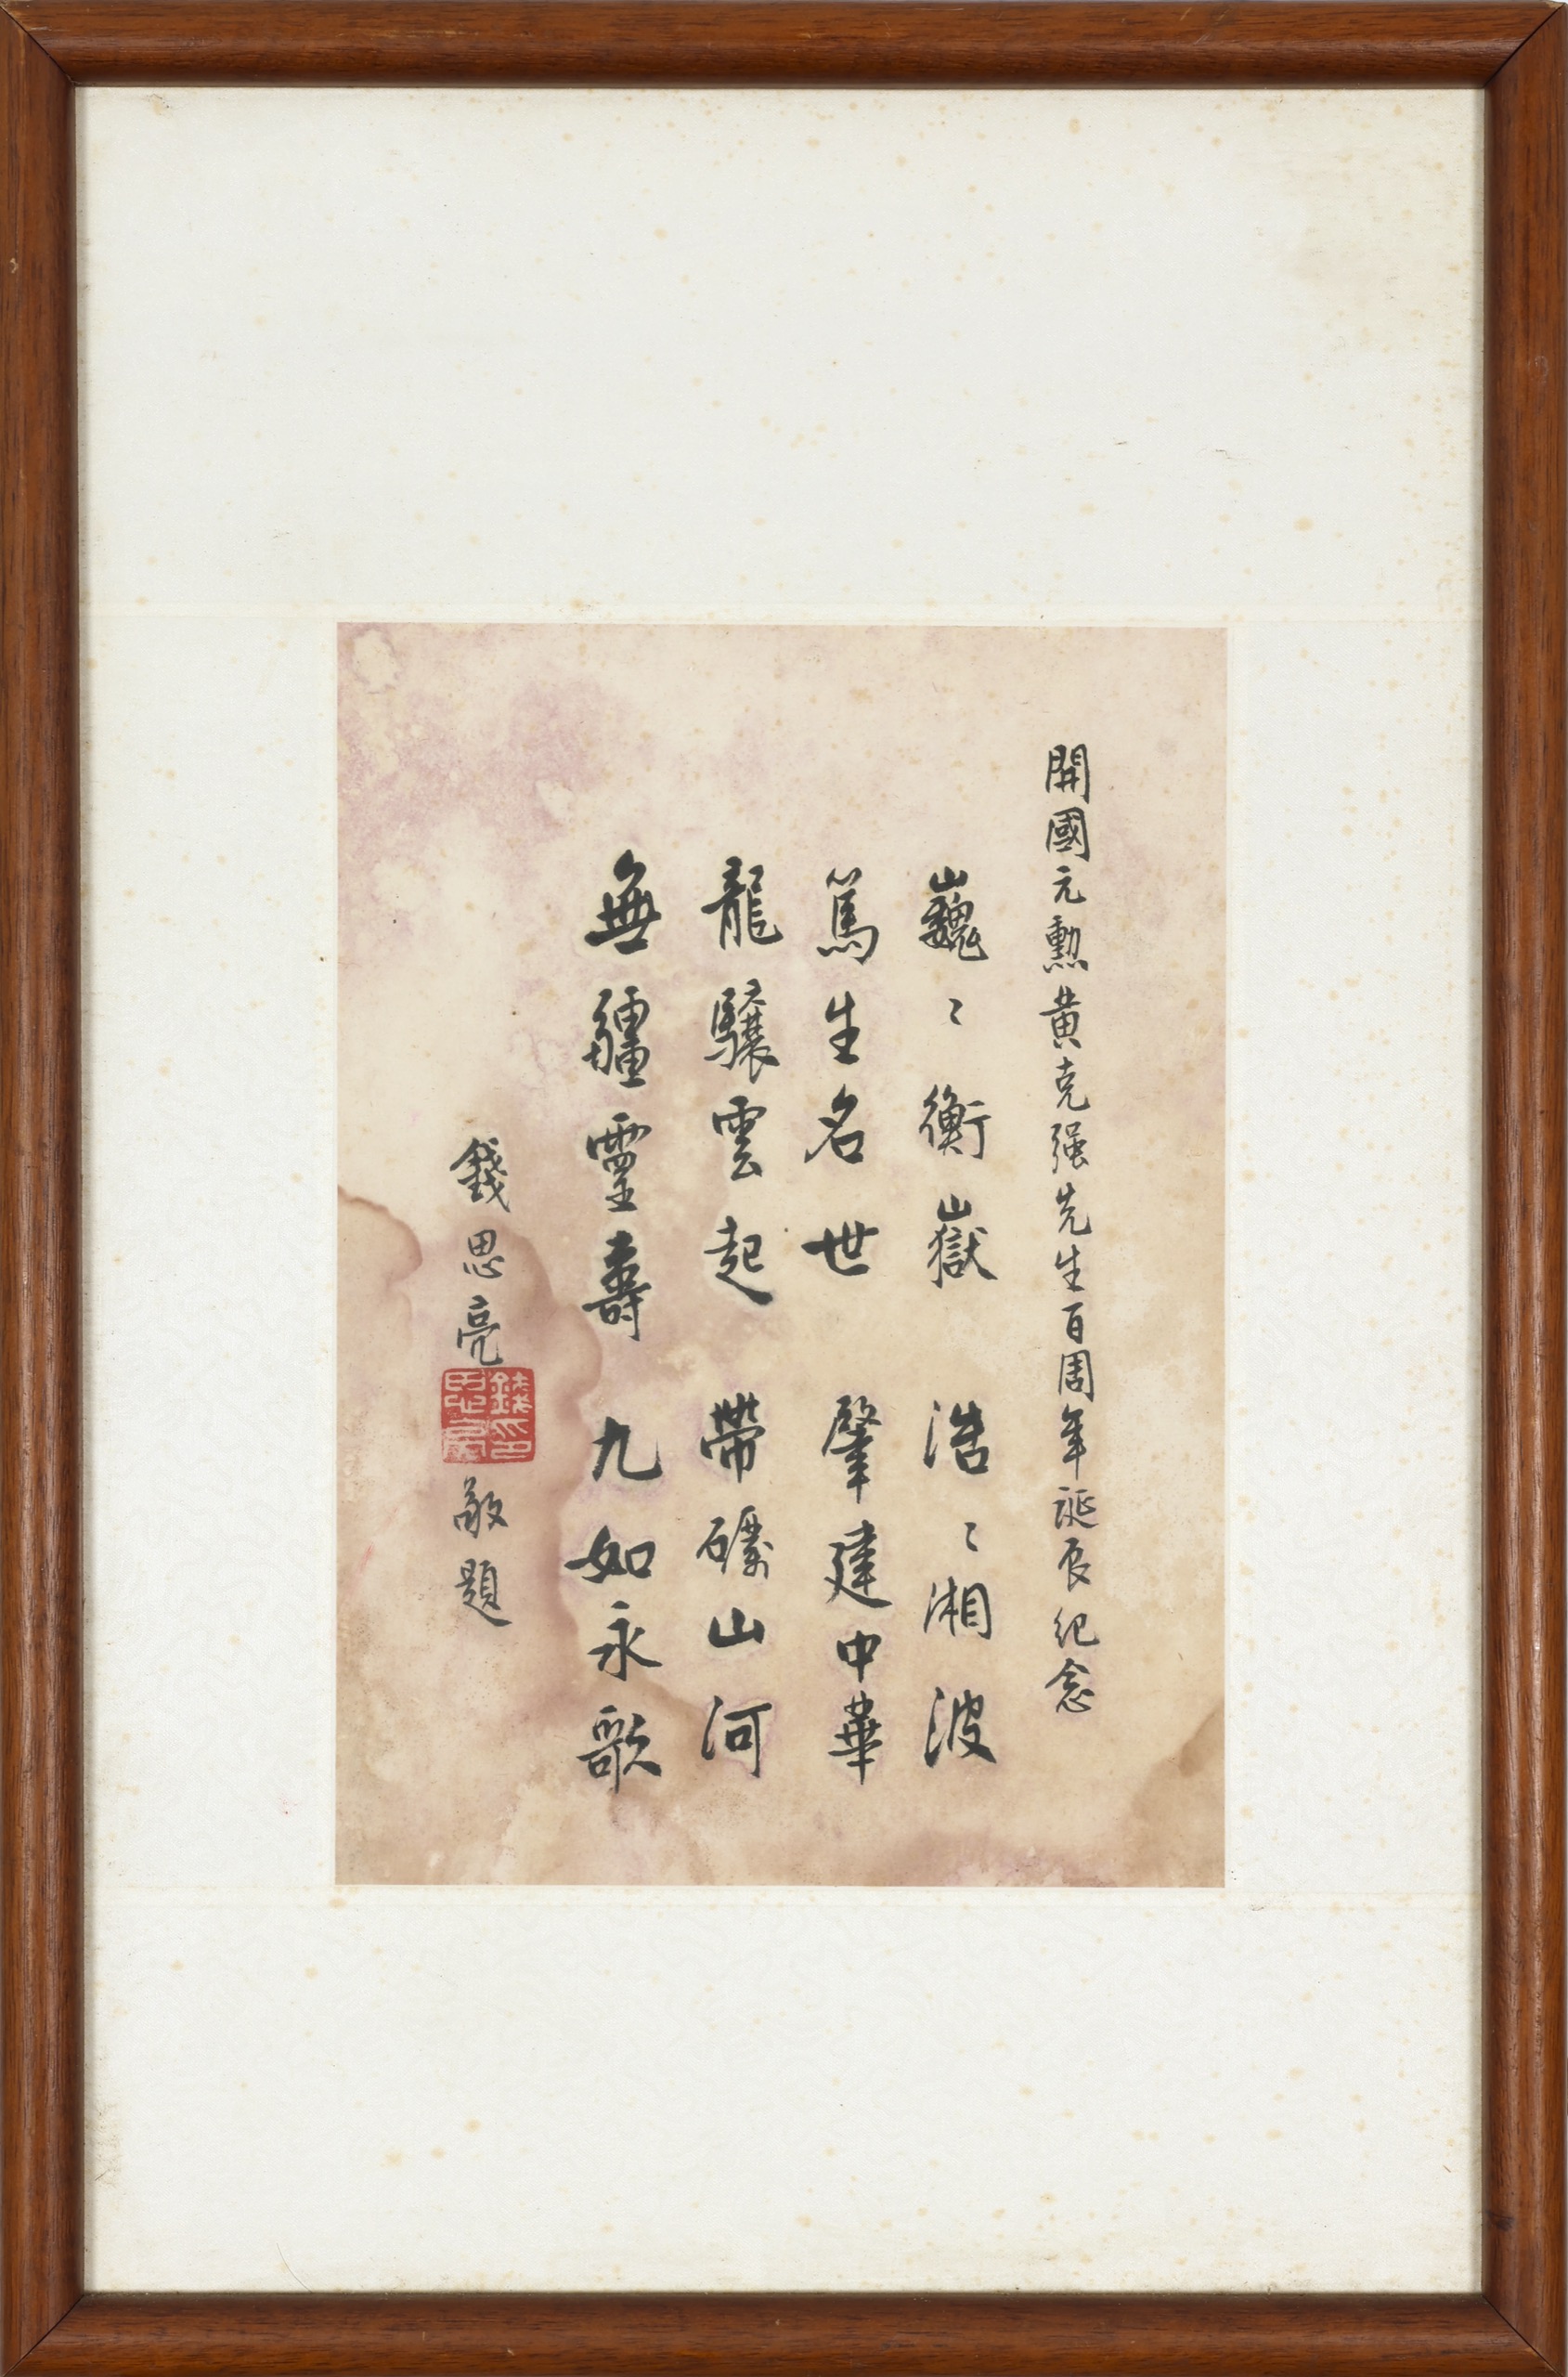 開國元勲黄克强先生百周年誕辰紀念
巍〻衡嶽 浩〻湘波
篤生名世 肇建中華
龍驤雲起 帶礪山河
無疆靈壽 九如永歌
錢思亮敬題
錢印思亮